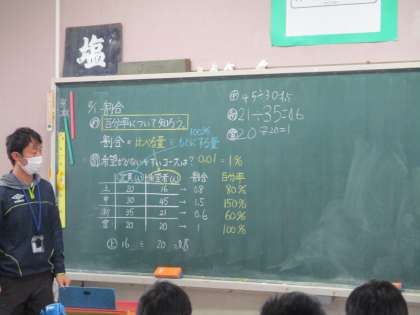 塩
5/ 割合
め 百分率について知ろう。
割合 = 比べる量 ÷ もとにする量
100%
問 希望がかないやすいコースは? 0.01 = 1%
定員(人) 希望者(人) 割合 百分率
20 16 → 0.8 80%
30 45 → 1.5 150%
35 21 → 0.6 60%
20 20 → 1 100%
16 ÷ 20 = 0.8
45÷30=1.5
21÷35=0.6
20÷20=1